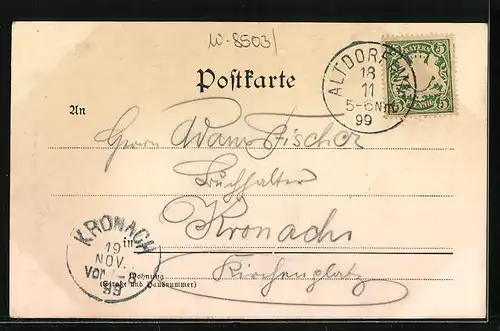 W-8503/
Postkarte
ALTDORF
18
11
5-6 Nm
99
BAYERN
5 5
5 PFENNIG 5
An
Herrn Adam Fischer
Buchhalter
in Kronach
Kirchenplatz
Wohnung
(Straße und Hausnummer)
KRONACH
19
NOV.
Vor
99